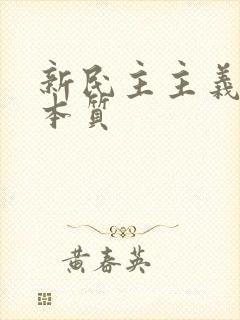 新民主主義
本質
黄春英